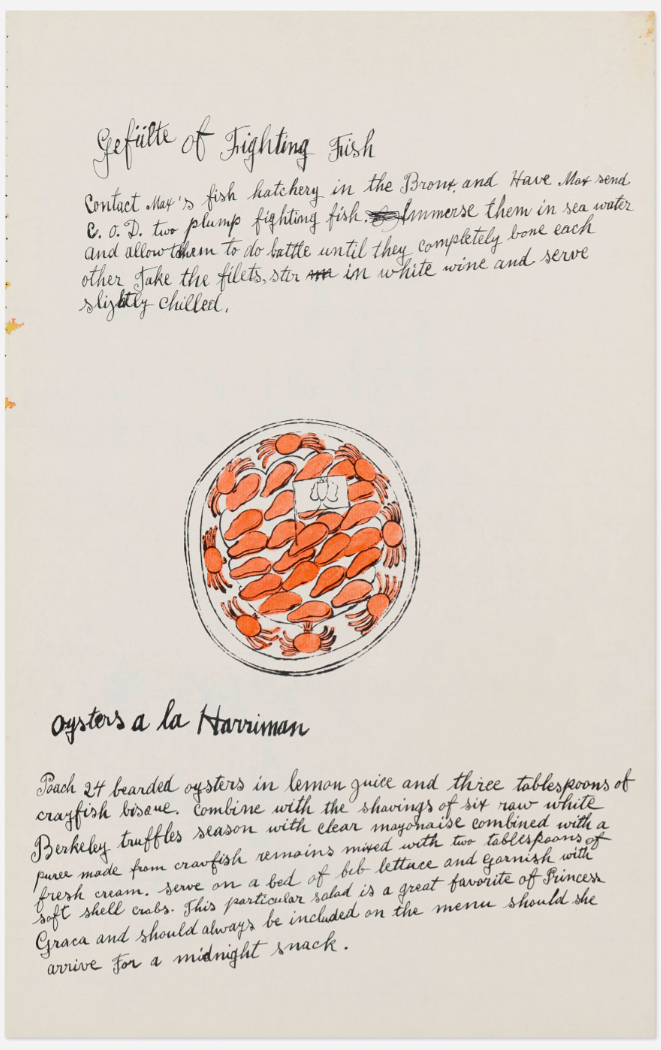 Gefülte of Fighting Fish
Contact Max's fish hatchery in the Bronx, and Have Max send
C. O. D. two plump fighting fish. Immerse them in sea water
and allow them to do battle until they completely bone each
other Take the filets, stir in white wine and serve
slightly chilled.
oysters a la Harriman
Poach 24 bearded oysters in lemon juice and three tablespoons of
crayfish bisque. Combine with the shavings of six raw white
Berkeley truffles season with clear mayonaise combined with a
puree made from crawfish remains mixed with two tablespoons of
fresh cream. serve on a bed of bib lettuce and garnish with
soft shell crabs. This particular salad is a great favorite of Princess
Graca and should always be included on the menu should she
arrive For a midnight snack.